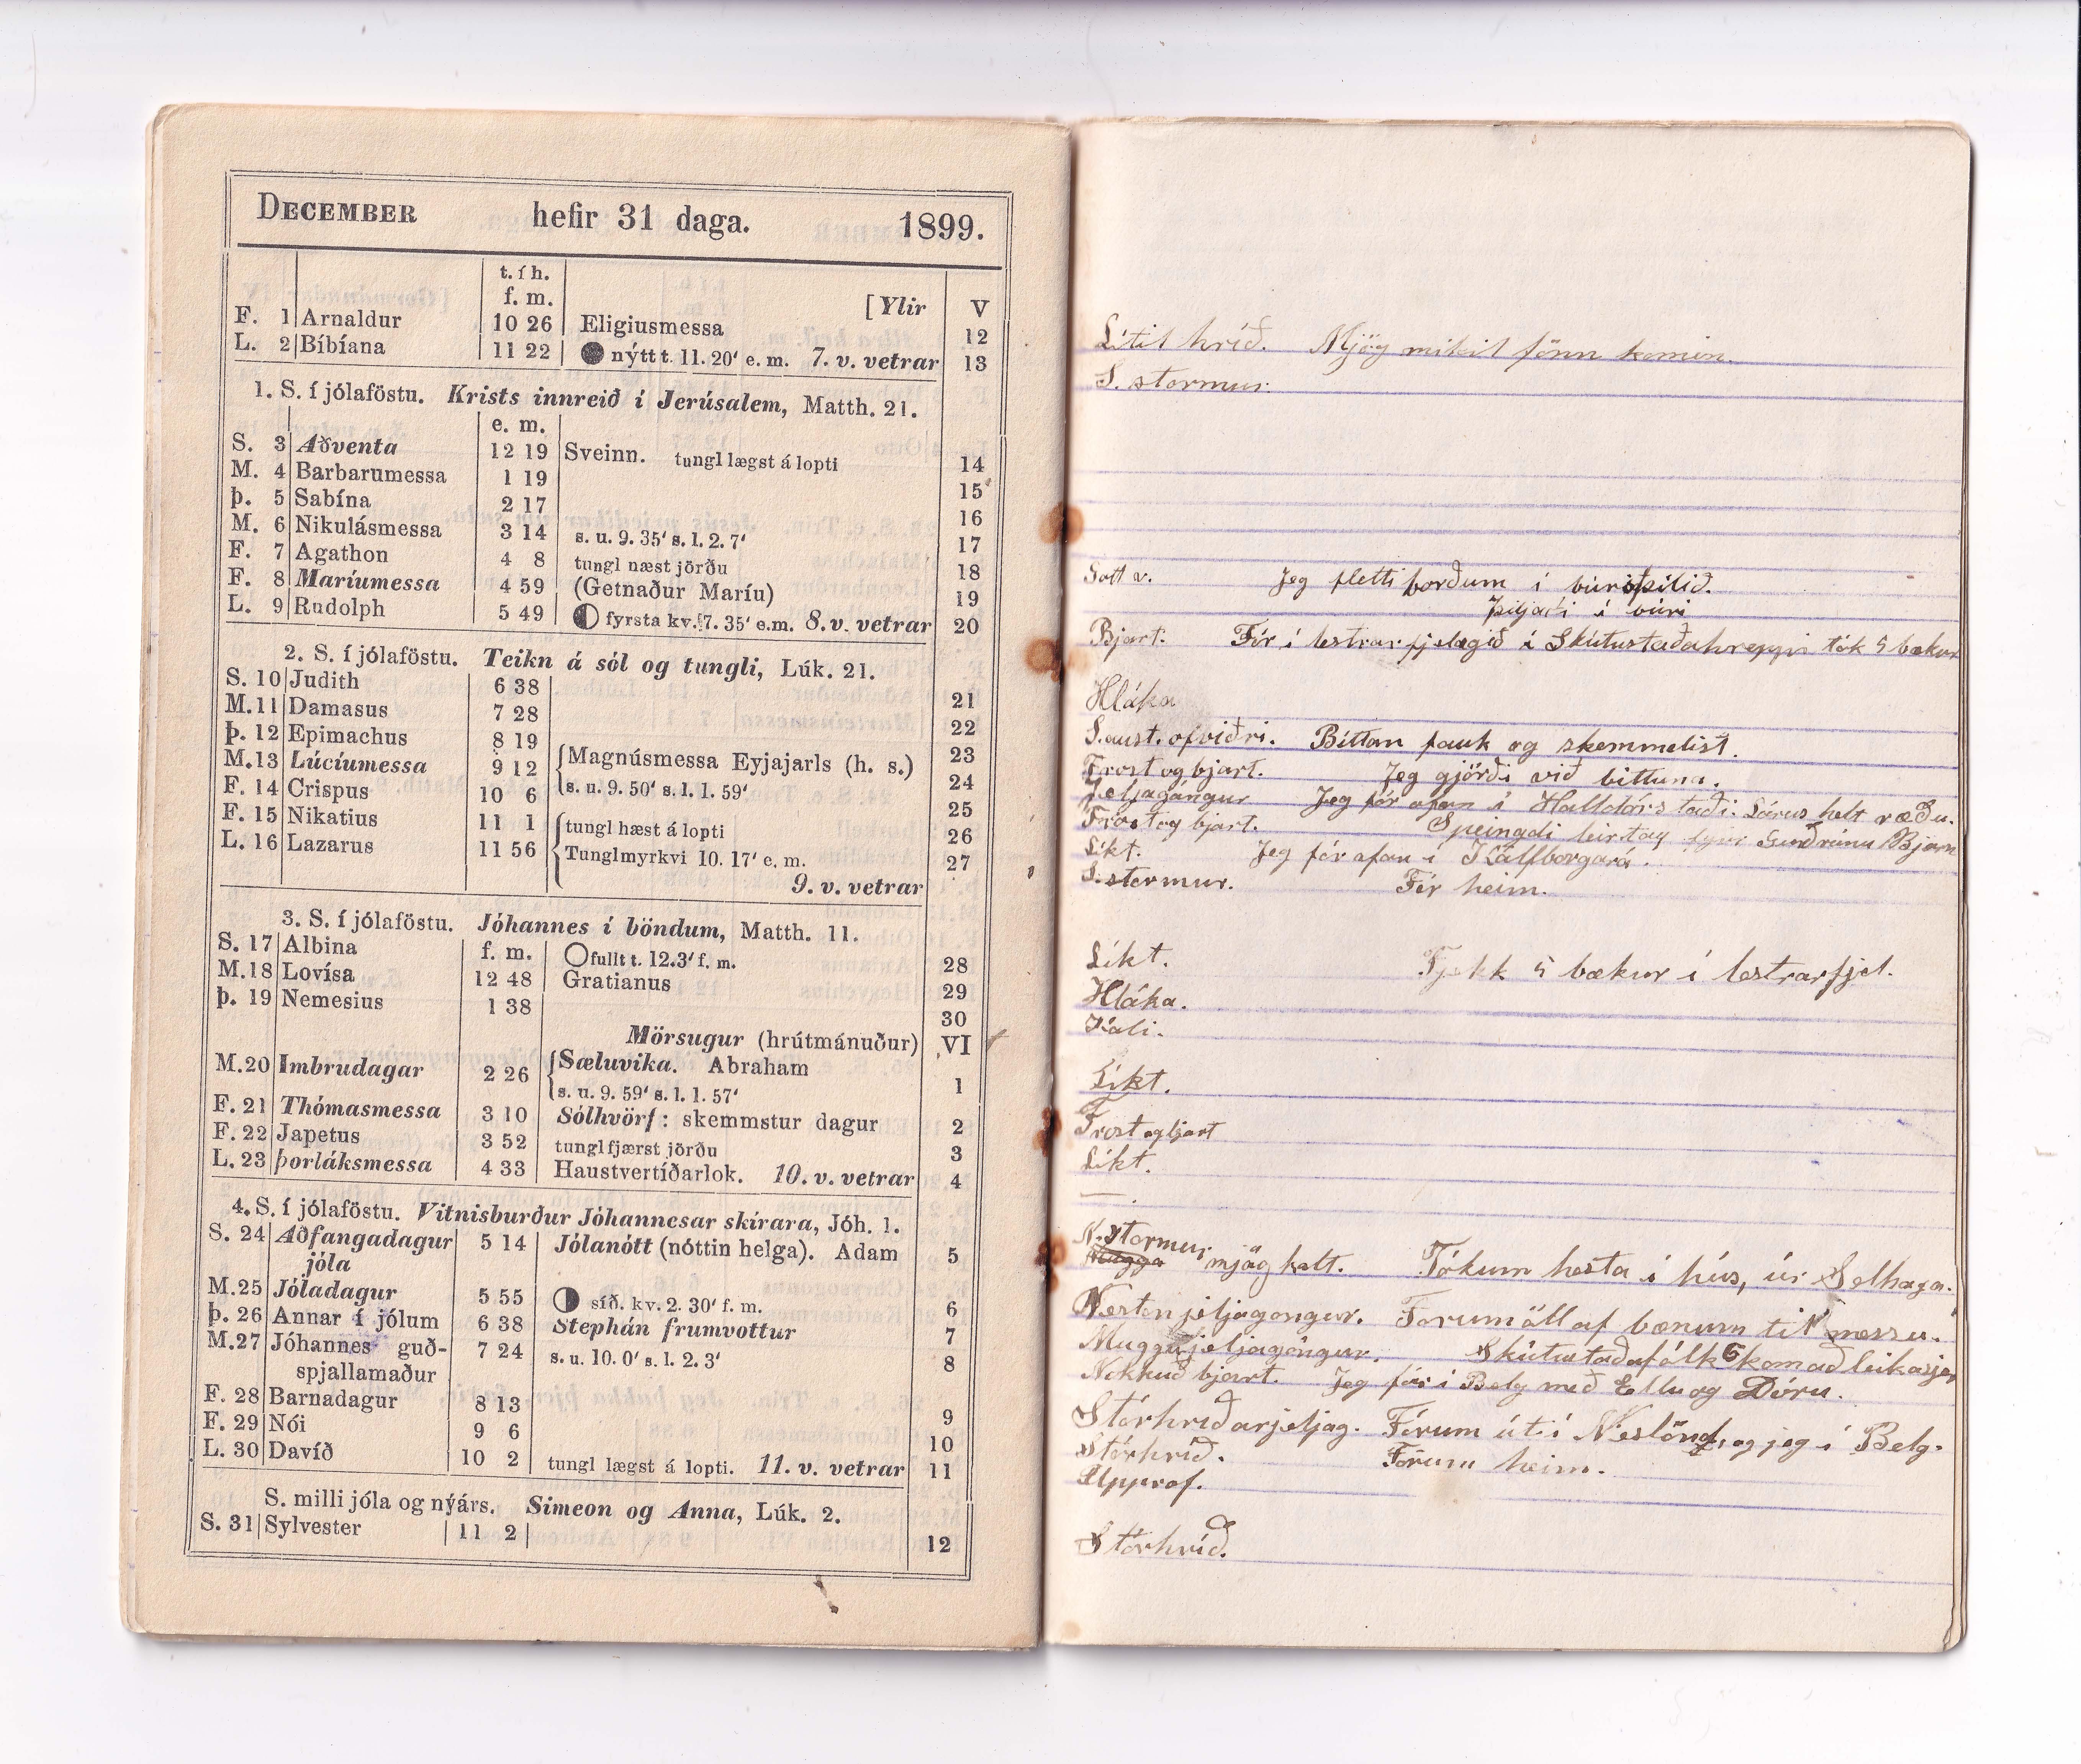 DECEMBER hefir 31 daga. 1899.
t. í h.
f. m. [Ylir V
F. 1 Arnaldur 10 26 Eligiusmessa 12
L. 2 Bíbíana 11 22 nýtt t. 11. 20' e. m. 7. v. vetrar 13
1. S. í jólaföstu. Krists innreið í Jerúsalem, Matth. 21.
e. m.
S. 3 Aðventa 12 19 Sveinn. tungl lægst á lopti 14
M. 4 Barbarumessa 1 19 15
Þ. 5 Sabína 2 17 16
M. 6 Nikulásmessa 3 14 s. u. 9. 35' s. l. 2. 7' 17
F. 7 Agathon 4 8 tungl næst jörðu 18
F. 8 Maríumessa 4 59 (Getnaður Maríu) 19
L. 9 Rudolph 5 49 fyrsta kv. 7. 35' e.m. 8. v. vetrar 20
2. S. í jólaföstu. Teikn á sól og tungli, Lúk. 21.
S. 10 Judith 6 38 21
M. 11 Damasus 7 28 22
Þ. 12 Epimachus 8 19 23
M. 13 Lúcíumessa 9 12 Magnúsmessa Eyjajarls (h. s.) 24
F. 14 Crispus 10 6 s. u. 9. 50' s. l. 1. 59' 25
F. 15 Nikatius 11 1 tungl hæst á lopti 26
L. 16 Lazarus 11 56 Tunglmyrkvi 10. 17' e. m. 27
9. v. vetrar
3. S. í jólaföstu. Jóhannes í böndum, Matth. 11.
S. 17 Albina f. m. fullt t. 12.3' f. m. 28
M. 18 Lovísa 12 48 Gratianus 29
Þ. 19 Nemesius 1 38 30
Mörsugur (hrútmánuður) VI
M. 20 Imbrudagar 2 26 Sæluvika. Abraham 1
s. u. 9. 59' s. l. 1. 57'
F. 21 Thómasmessa 3 10 Sólhvörf: skemmstur dagur 2
F. 22 Japetus 3 52 tungl fjærst jörðu 3
L. 23 Þorláksmessa 4 33 Haustvertíðarlok. 10. v. vetrar 4
4. S. í jólaföstu. Vitnisburður Jóhannesar skírara, Jóh. 1.
S. 24 Aðfangadagur 5 14 Jólanótt (nóttin helga). Adam 5
jóla
M. 25 Jóladagur 5 55 síð. kv. 2. 30' f. m. 6
Þ. 26 Annar í jólum 6 38 Stephán frumvottur 7
M. 27 Jóhannes guð- 7 24 s. u. 10. 0' s. l. 2. 3' 8
spjallamaður
F. 28 Barnadagur 8 13 9
F. 29 Nói 9 6 10
L. 30 Davíð 10 2 tungl lægst á lopti. 11. v. vetrar 11
S. milli jóla og nýárs. Simeon og Anna, Lúk. 2.
S. 31 Sylvester 11 2 12
Lítil hríð. Mjög mikil fönn komin
S. stormur.
Gott v. Jeg fletti borðum í búrþilið.
Þiljaði í búri
Bjart. Fór í lestrarfjelagið í Skútustaðahreppi tók 5 bækur
Hláka
S. aust. ofviðri. Bittan fauk og skemmdist.
Frost og bjart. Jeg gjörði við bittuna.
Jeljagángur Jeg fór ofan í Halldórsstaði. Lárus helt ræðu.
Frost og bjart. Speingdi leirtay fyrir Guðrúnu Björn
Líkt. Jeg fór ofan í Kálfborgará.
S. stormur. Fór heim.
Líkt. Fjekk 5 bækur í lestrarfjel.
Hláka.
Kali.
Líkt.
Frost og bjart
Líkt.
—.
N. stormur
Mugga mjög kalt. Tókum hesta í hús, úr Selhaga.
Nesten jeljagongur. Forum öll af bænum til messu.
Muggujeljagöngur. Skútustaðafólk kom að leika sjer
Nokkuð bjart. Jeg fór í Belg með Ellu og Dóru.
Stórhríðarjeljag. Fórum út í Neslönd, og jeg í Belg.
Stórhríð. Fórum heim.
Upprof.
Stórhríð.